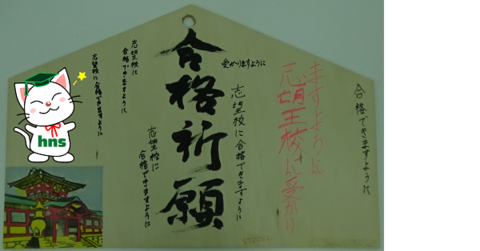 合格できますように
志望校に受かり
ますように
受かりますように
志望校に合格できますように
合格祈願
志望校に
合格できますように
志望校に
合格できますように
志望校に合格できますように
hns